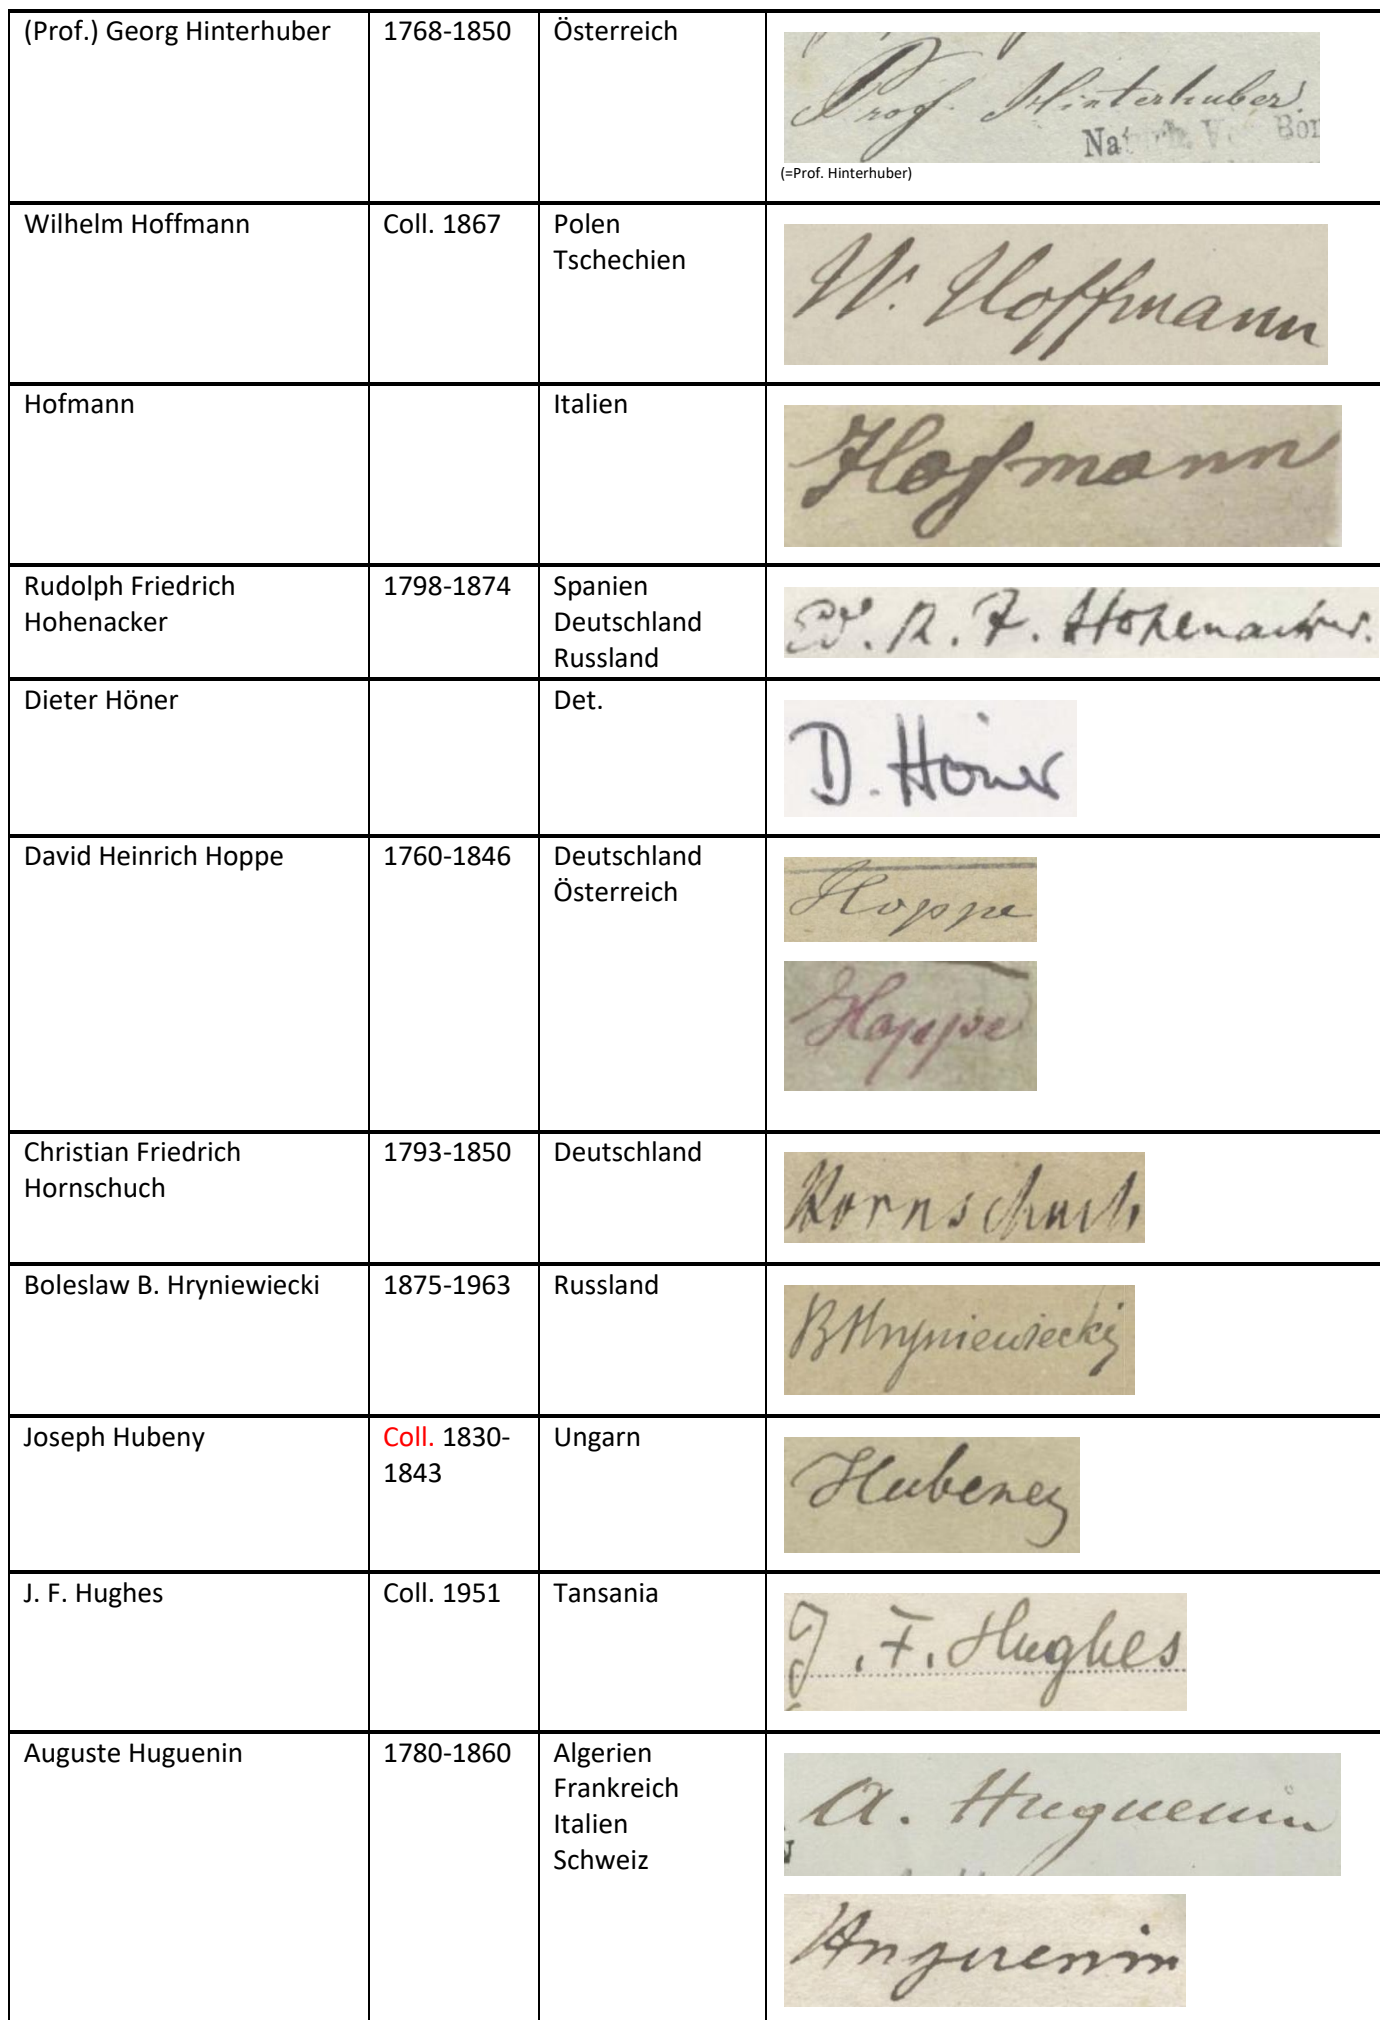 (Prof.) Georg Hinterhuber 1768-1850 Österreich
Prof. Hinterhuber.
Na
(=Prof. Hinterhuber)
Wilhelm Hoffmann Coll. 1867 Polen
Tschechien
W. Hoffmann
Hofmann Italien
Hofmann
Rudolph Friedrich
Hohenacker
1798-1874 Spanien
Deutschland
Russland
Ed. R. F. Hohenacker.
Dieter Höner Det.
D. Höner
David Heinrich Hoppe 1760-1846 Deutschland
Österreich
Hoppe
Hoppe
Christian Friedrich
Hornschuch
1793-1850 Deutschland
Hornschuch
Boleslaw B. Hryniewiecki 1875-1963 Russland
B Hryniewiecki
Joseph Hubeny Coll. 1830-
1843
Ungarn
Hubeney
J. F. Hughes Coll. 1951 Tansania
J. F. Hughes
Auguste Huguenin 1780-1860 Algerien
Frankreich
Italien
Schweiz
A. Huguenin
Huguenin